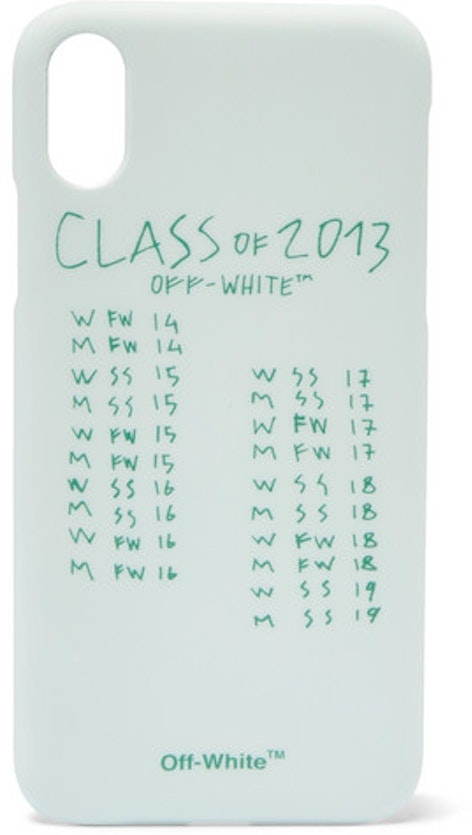 CLASS OF 2013
OFF-WHITE™
W FW 14
M FW 14
W SS 15
M SS 15
W FW 15
M FW 15
W SS 16
M SS 16
W FW 16
M FW 16
W SS 17
M SS 17
W FW 17
M FW 17
W SS 18
M SS 18
W FW 18
M FW 18
W SS 19
M SS 19
Off-White™